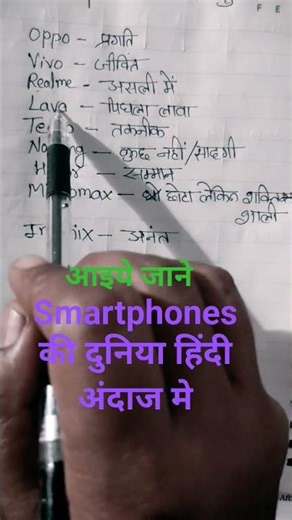 FE
Oppo - प्रगति
Vivo - जीवित
Realme - असली में
Lava - पिघला लावा
- तकनीक
- कुछ नहीं/सादगी
- सम्मान
- छोटा लेकिन शक्ति
शाली
- अनंत
आइये जाने
Smartphones
की दुनिया हिंदी
अंदाज मे